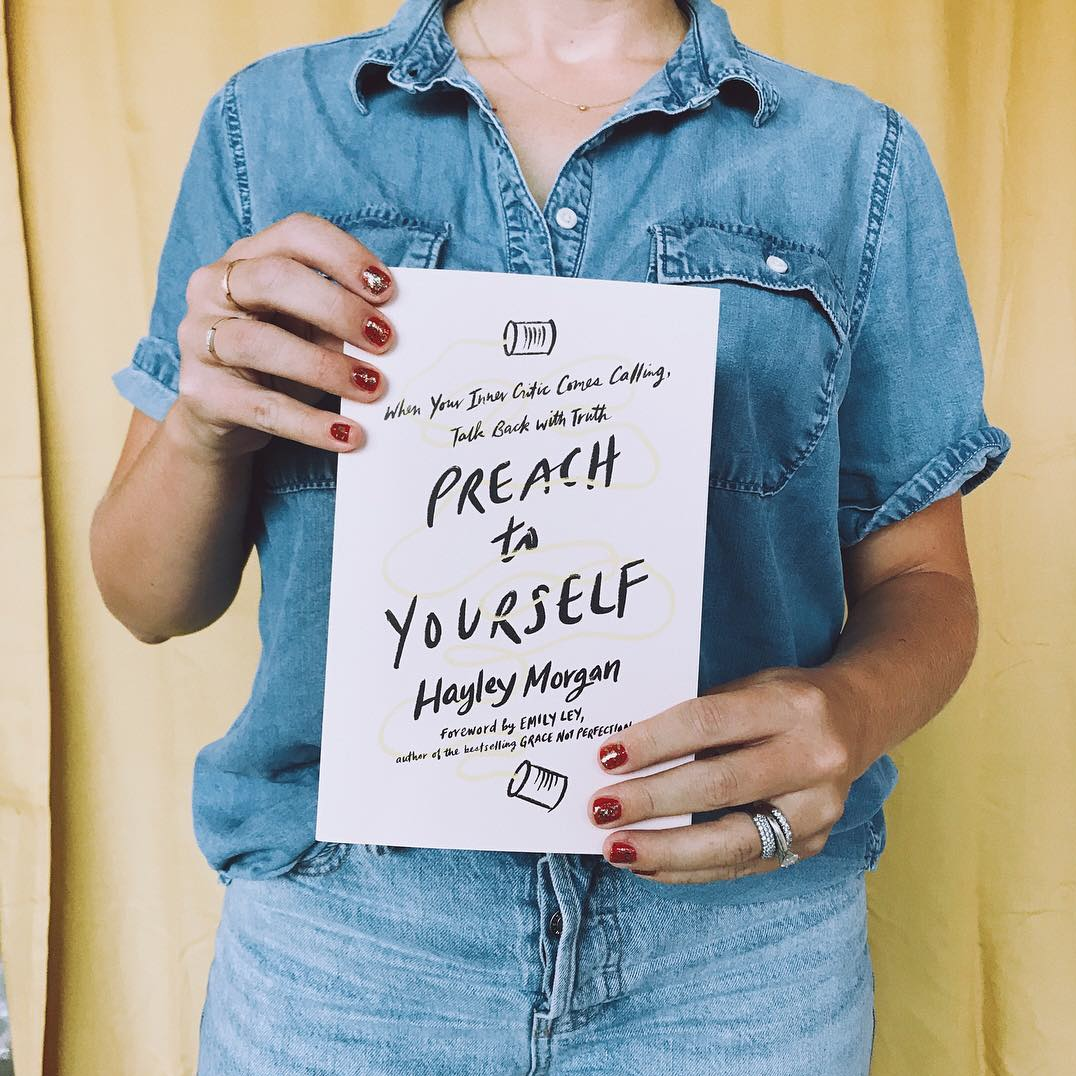 When Your Inner Critic Comes Calling,
Talk Back with Truth
PREACH
to
YOURSELF
Hayley Morgan
Foreword by EMILY LEY,
author of the bestselling GRACE NOT PERFECTION